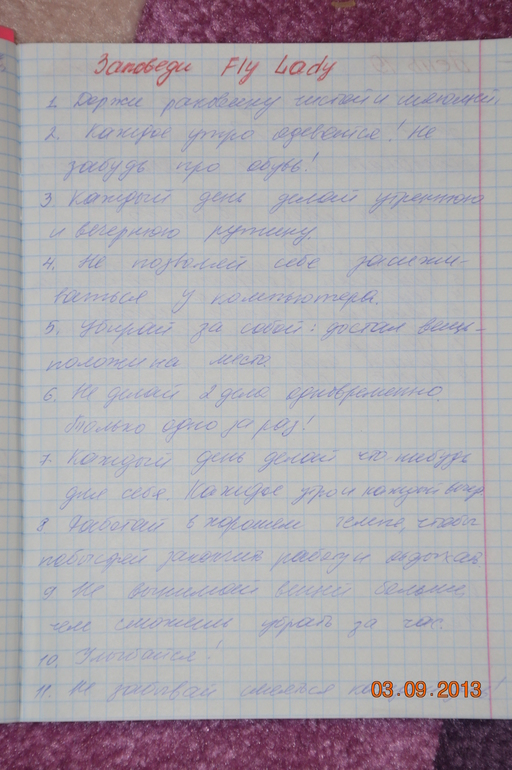 Заповеди Fly Lady
1. Держи раковину чистой и сияющей.
2. Каждое утро одевайся! Не
забудь про обувь!
3. Каждый день делай утреннюю
и вечернюю рутину.
4. Не позволяй себе засижи-
ваться у компьютера.
5. Убирай за собой: достал вещь-
положи на место.
6. Не делай 2 дела одновременно.
Только одно за раз!
7. Каждый день делай что-нибудь
для себя. Каждое утро и каждый вечер.
8. Работай в хорошем темпе, чтобы
побыстрей закончить работу и отдыхать.
9. Не вынимай вещей больше,
чем сможешь убрать за час.
10. Улыбайся!
11. Не забывай смеяться
03.09.2013